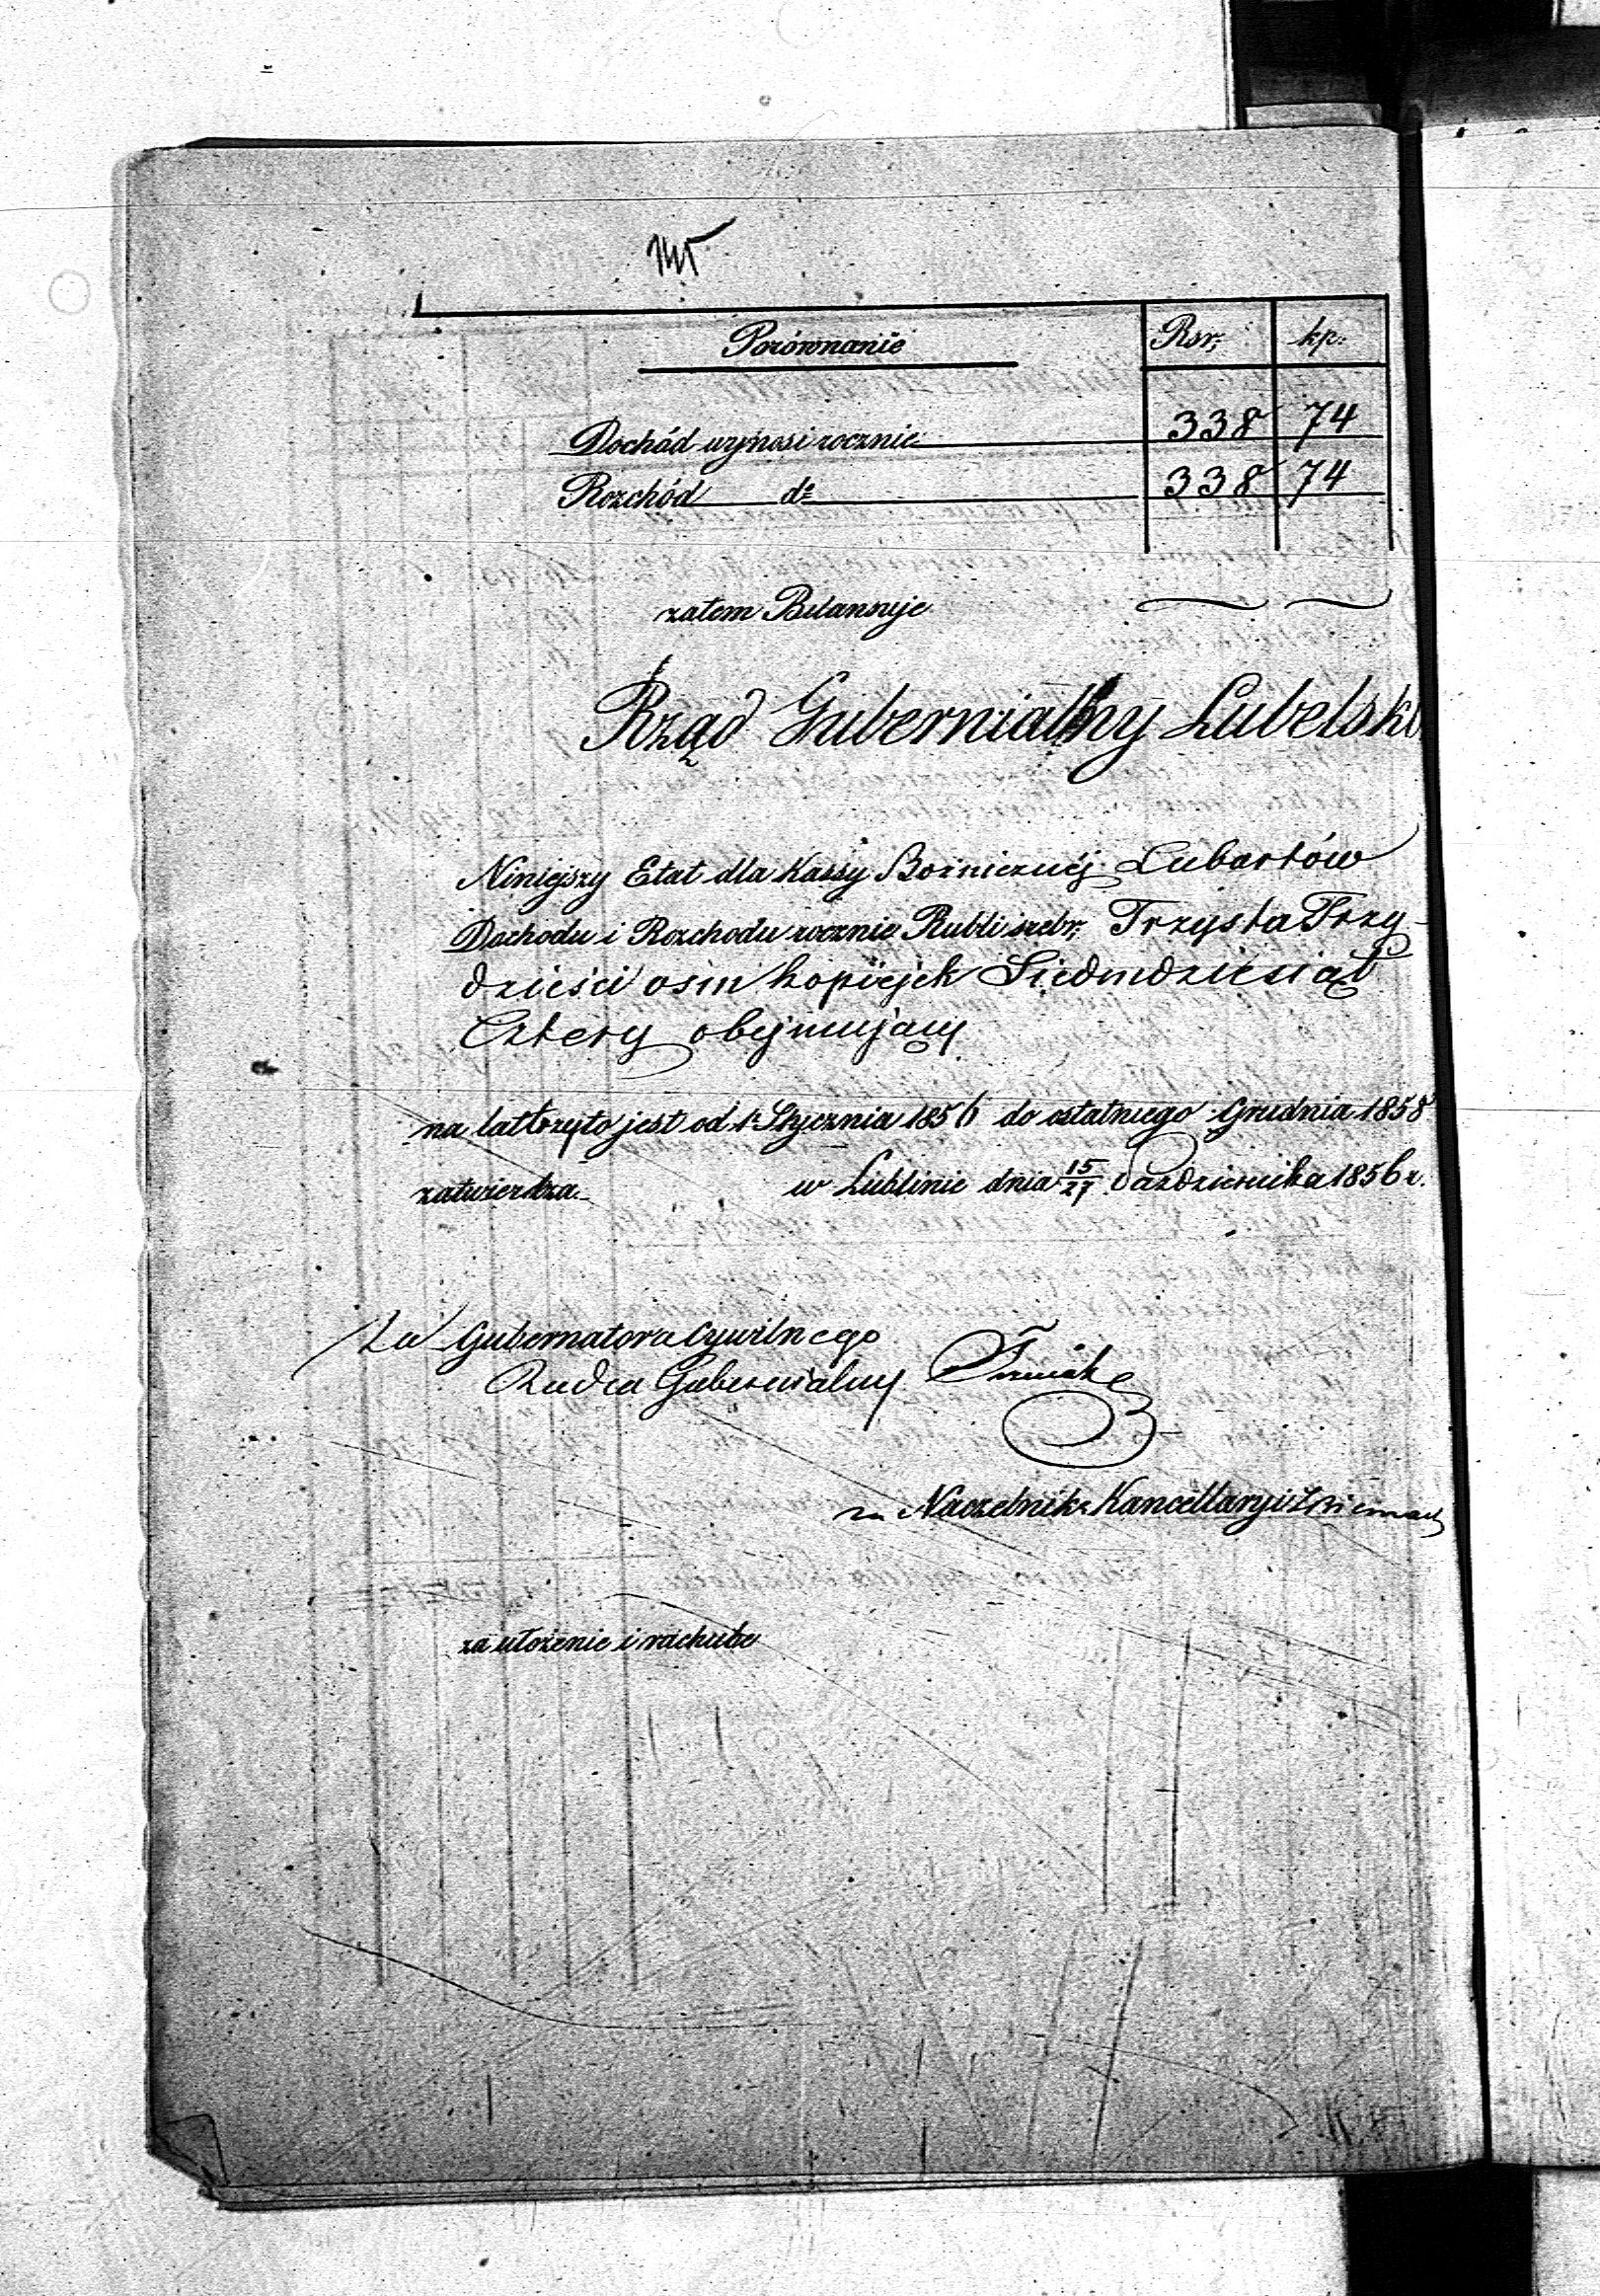 Porównanie Rsr, kp.
Dochód wynosi rocznie 338 74
Rozchód do 338 74
zatem Bilansuje
Rząd Gubernialny Lubelski
Niniejszy Etat dla Kassy Bożniczéj Lubartów
Dochodu i Rozchodu rocznie Rubli srebr, Trzysta Trzy-
dzieści osm kopiejek Siedmdziesiąt
Cztery obejmujący
na lat trzy to jest od 1 Stycznia 1856 do ostatniego Grudnia 1858
zatwierdza w Lublinie dnia 15/27 Października 1856 r.
Za Gubernatora Cywilnego
Radca Gubernialny
za Naczelnik Kancellaryi
za ułożenie i rachubę